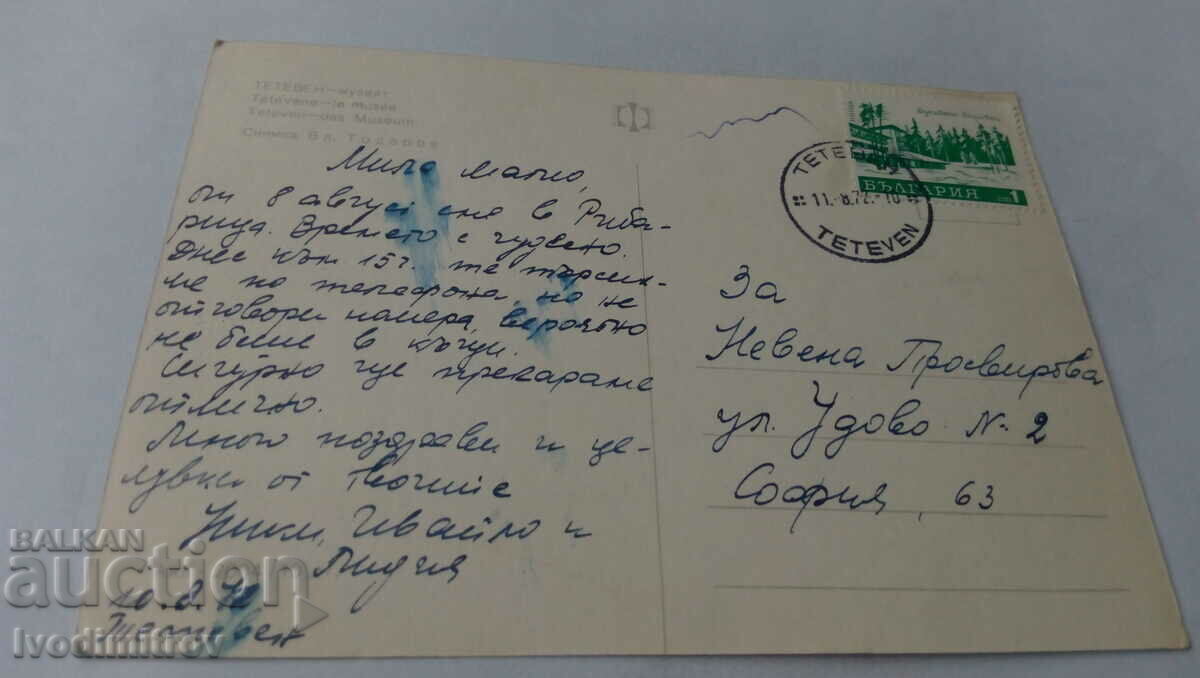 ТЕТЕВЕН — музеят
Tetevene — le musée
Teteven — das Museum
Снимка Вл. Тодоров
Мила мамо,
от 8 август сме в Риба-
рица. Времето е чудесно.
Днес към 15 ч. те търсих-
ме по телефона, но не
отговори номера, вероятно
не беше в къщи.
Сигурно ще прекараме
отлично.
Много поздрави и це-
лувки от твоите
Ники, Ивайло и
Лидия
10.8.72
Тетевен
БЪЛГАРИЯ 1
11.-8.72.-10
TETEVEN
За
Невена Просвирова
ул. Удово N-2
София, 63
BALKAN
auction
Ivodimitrov